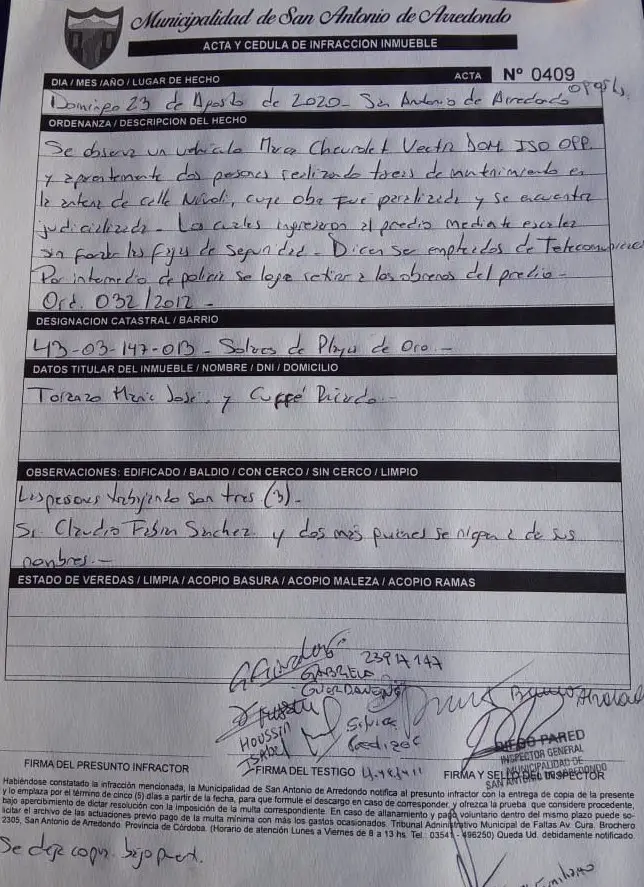 Municipalidad de San Antonio de Arredondo
ACTA Y CEDULA DE INFRACCION INMUEBLE
DIA / MES /AÑO / LUGAR DE HECHO ACTA Nº 0409
Domingo 23 de Agosto de 2020 - San Antonio de Arredondo
ORDENANZA / DESCRIPCION DEL HECHO
Se observa un vehículo Marca Chevrolet Vectra DOM. ISO OPP.
y aparentemente dos personas realizando tareas de mantenimiento en
la antena de calle cuya obra fue paralizada y se encuentra
judicializada - Los cuales ingresaron al predio mediante escalera
sin las fajas de seguridad - Dicen ser empleados de
Por intermedio de policía se logra retirar a los obreros del predio -
Ord. 032/2012 -
DESIGNACION CATASTRAL / BARRIO
43-03-147-013 - Solares de Playas de Oro -
DATOS TITULAR DEL INMUEBLE / NOMBRE / DNI / DOMICILIO
María José y
OBSERVACIONES: EDIFICADO / BALDIO / CON CERCO / SIN CERCO / LIMPIO
Las personas trabajando son tres (3) -
Sr. Claudio Fabian Sanchez y dos más quienes se niegan a de sus
nombres. -
ESTADO DE VEREDAS / LIMPIA / ACOPIO BASURA / ACOPIO MALEZA / ACOPIO RAMAS
23914147
GABRIELA
HOUSSIN
ISABEL
Silvia
DIEGO PARED
INSPECTOR GENERAL
MUNICIPALIDAD DE
SAN ANTONIO DE ARREDONDO
FIRMA DEL PRESUNTO INFRACTOR FIRMA DEL TESTIGO FIRMA Y SELLO DEL INSPECTOR
Habiéndose constatado la infracción mencionada, la Municipalidad de San Antonio de Arredondo notifica al presunto infractor con la entrega de copia de la presente
y lo emplaza por el término de cinco (5) días a partir de la fecha, para que formule el descargo en caso de corresponder y ofrezca la prueba que considere procedente,
bajo apercibimiento de dictar resolución con la imposición de la multa correspondiente. En caso de allanamiento y pago voluntario dentro del mismo plazo puede so-
licitar el archivo de las actuaciones previo pago de la multa mínima con más los gastos ocasionados. Tribunal Administrativo Municipal de Faltas Av. Cura. Brochero
2305, San Antonio de Arredondo. Provincia de Córdoba. (Horario de atención Lunes a Viernes de 8 a 13 hs. Tel.: 03541 - 496250) Queda Ud. debidamente notificado.
Se deja copia bajo puerta.